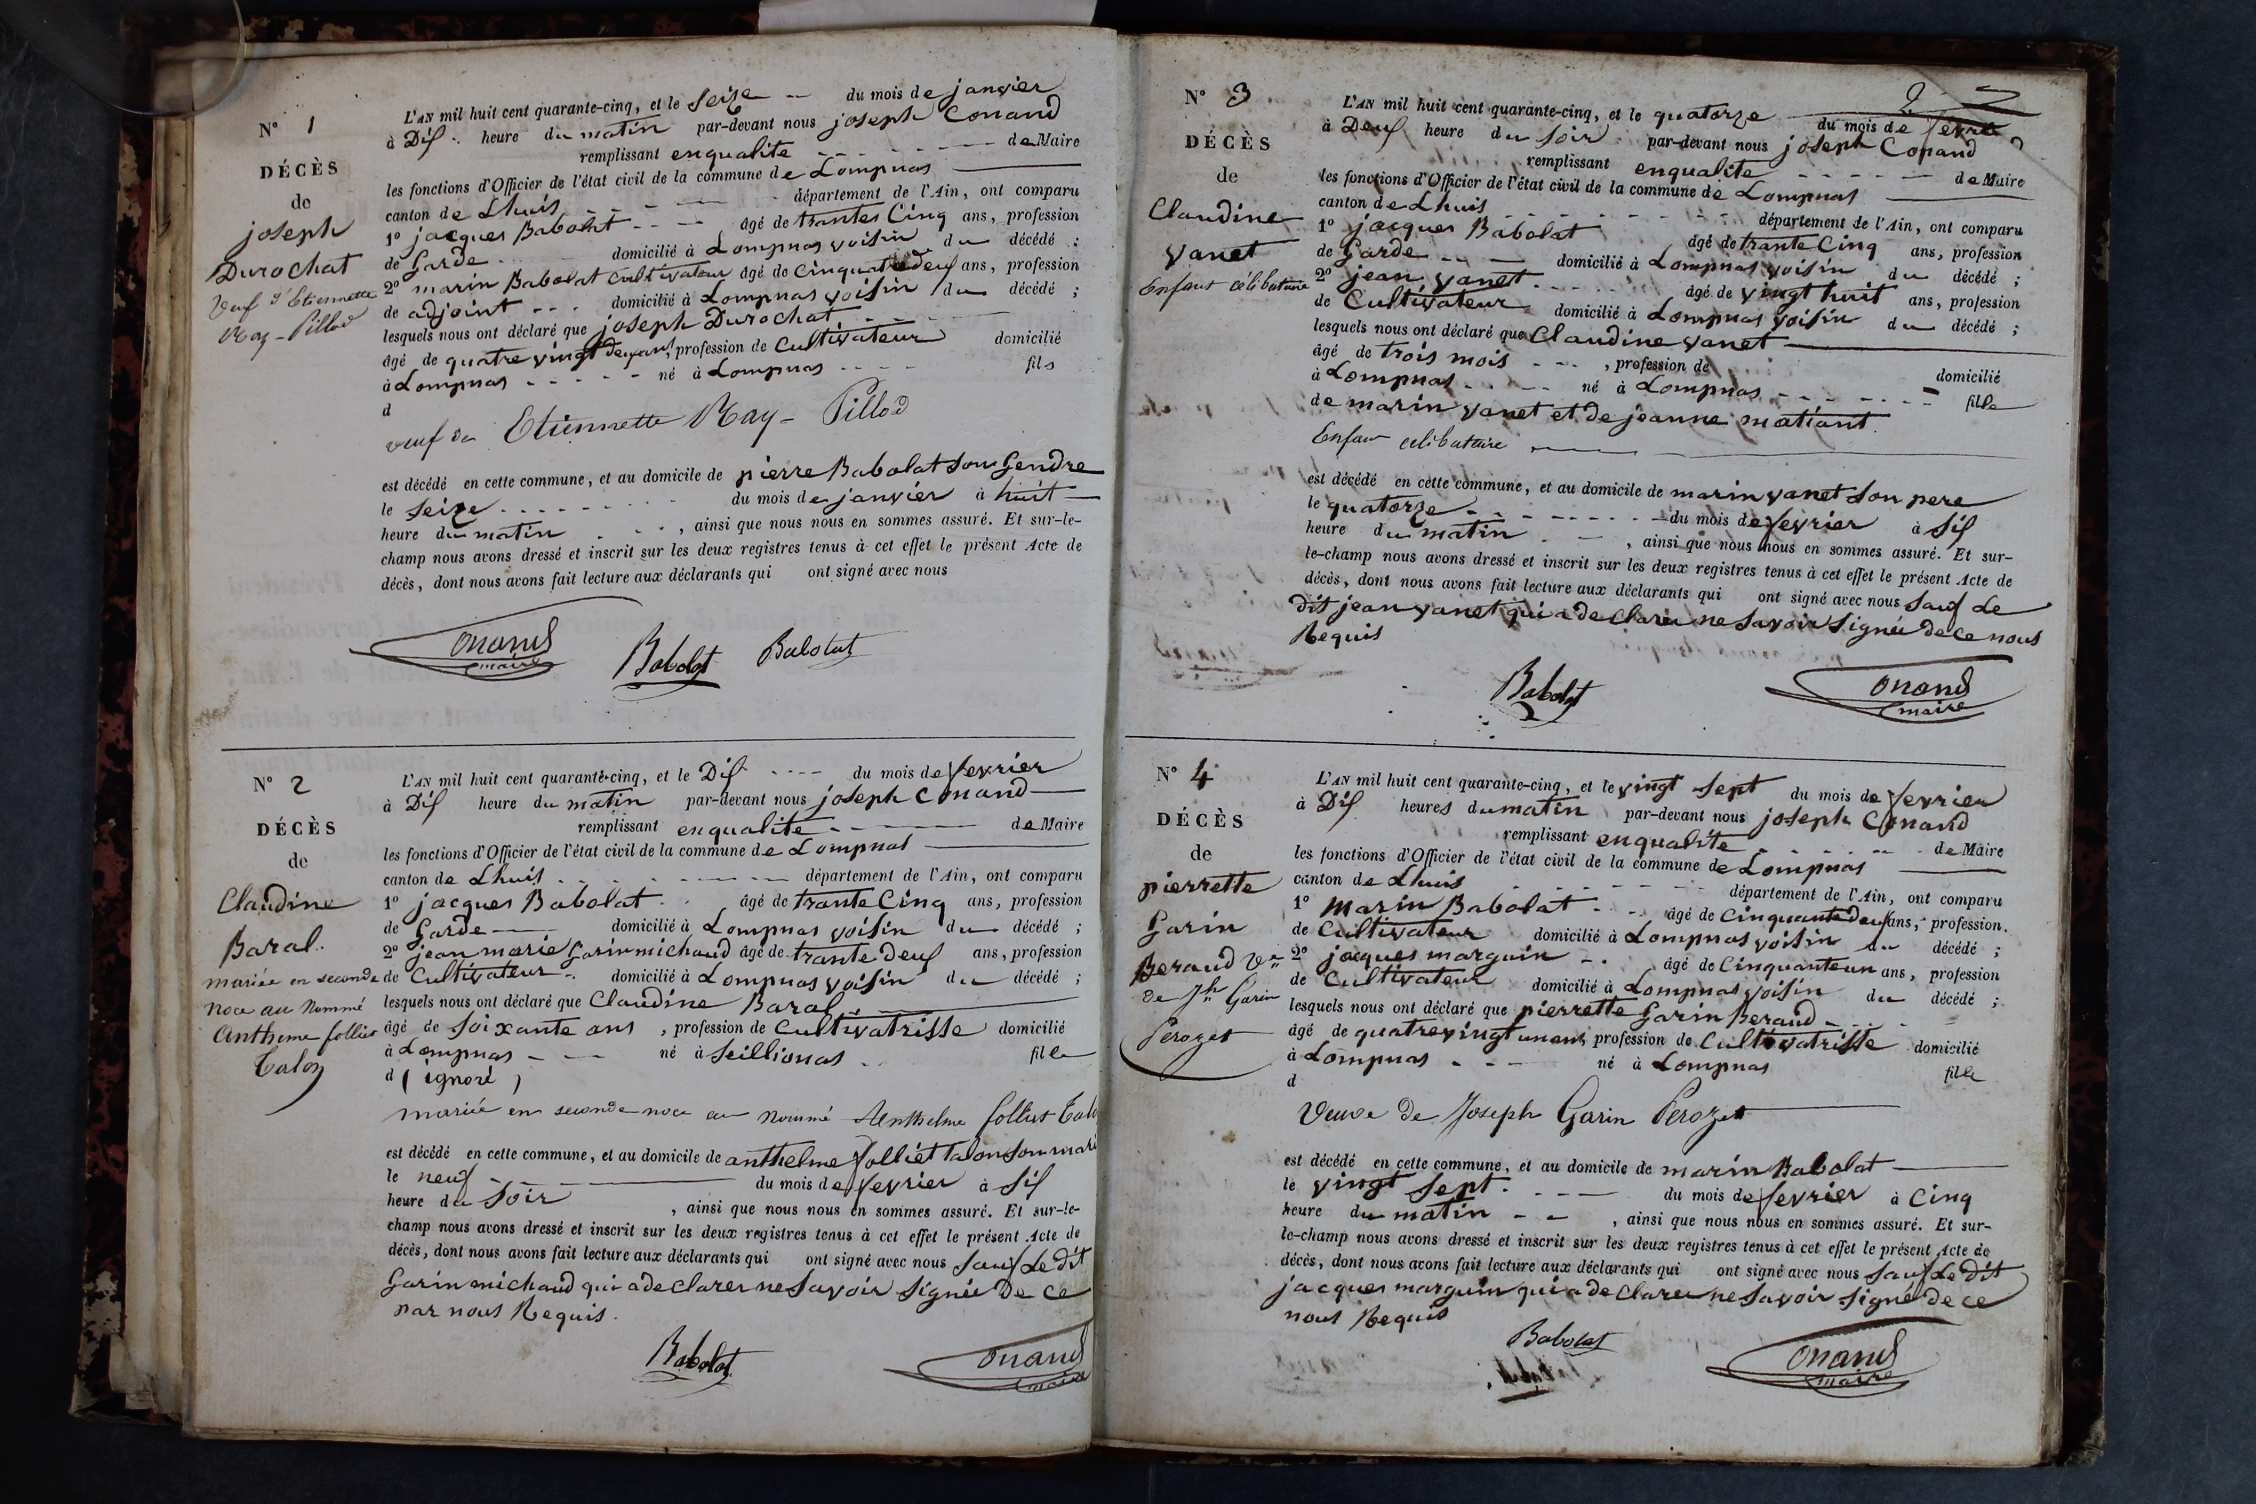 N° 1
DÉCÈS
de
joseph
Durochat
Veuf d'Etiennette
Ray-Pillod
L'AN mil huit cent quarante-cinq, et le seize du mois de janvier
à Dis heure du matin par-devant nous joseph Conand
remplissant enqualite de Maire
les fonctions d'Officier de l'état civil de la commune de Lompnas
canton de Lhuis département de l'Ain, ont comparu
1° jacques Babolat âgé de trantes Cinq ans, profession
de Garde domicilié à Lompnas voisin du décédé ;
2° marin Babolat Cultivateur âgé de Cinquatedeus ans, profession
de adjoint domicilié à Lompnas voisin du décédé ;
lesquels nous ont déclaré que joseph Durochat
âgé de quatre vingt ans, profession de Cultivateur domicilié
à Lompnas né à Lompnas fils
d
veuf de Etiennette Ray-Pillod
est décédé en cette commune, et au domicile de pierre Babolat son Gendre
le seize du mois de janvier à huit
heure du matin , ainsi que nous nous en sommes assuré. Et sur-le-
champ nous avons dressé et inscrit sur les deux registres tenus à cet effet le présent Acte de
décès, dont nous avons fait lecture aux déclarants qui ont signé avec nous
Conand
maire
Babolat Babolat
N° 2
DÉCÈS
de
Claudine
Baral.
mariée en seconde
noce au nommé
Antheme folliet
Talon
L'AN mil huit cent quarante-cinq, et le Dis du mois de fevrier
à Dis heure du matin par-devant nous joseph Conand
remplissant enqualite de Maire
les fonctions d'Officier de l'état civil de la commune de Lompnas
canton de Lhuis département de l'Ain, ont comparu
1° jacques Babolat âgé de trante Cinq ans, profession
de Garde domicilié à Lompnas voisin du décédé ;
2° jean marie Garin michaud âgé de trante deus ans, profession
de Cultivateur domicilié à Lompnas voisin du décédé ;
lesquels nous ont déclaré que Claudine Baral
âgé de soixante ans , profession de Cultivatrisse domicilié
à Lompnas né à Seillionas fille
d ( ignoré )
mariée en seconde noce au nommé Anthelme folliet Talon
est décédé en cette commune, et au domicile de anthelme folliet Talon son mari
le neuf du mois de fevrier à Sis
heure du soir , ainsi que nous nous en sommes assuré. Et sur-le-
champ nous avons dressé et inscrit sur les deux registres tenus à cet effet le présent Acte de
décès, dont nous avons fait lecture aux déclarants qui ont signé avec nous sauf Le dit
Garin michaud qui a de clarer ne savoir signée De ce
par nous Requis.
Babolat Conand
maire
2
N° 3
DÉCÈS
de
Claudine
vanet
Enfant célibataire
L'AN mil huit cent quarante-cinq, et le quatorze du mois de fevrie
à Deus heure du soir par-devant nous joseph Conand
remplissant enqualite de Maire
les fonctions d'Officier de l'état civil de la commune de Lompnas
canton de Lhuis département de l'Ain, ont comparu
1° jacques Babolat âgé de trante Cinq ans, profession
de Garde domicilié à Lompnas voisin du décédé ;
2° jean vanet âgé de vingt huit ans, profession
de Cultivateur domicilié à Lompnas voisin du décédé ;
lesquels nous ont déclaré que Claudine vanet
âgé de trois mois , profession de domicilié
à Lompnas né à Lompnas fille
de marin vanet et de jeanne matiant
Enfant celibataire
est décédé en cette commune, et au domicile de marin vanet son pere
le quatorze du mois de fevrier à Sis
heure du matin , ainsi que nous nous en sommes assuré. Et sur-
le-champ nous avons dressé et inscrit sur les deux registres tenus à cet effet le présent Acte de
décès, dont nous avons fait lecture aux déclarants qui ont signé avec nous sauf Le
dit jean vanet qui a de clarée ne savoir signée de ce nous
Requis
Babolat Conand
maire
N° 4
DÉCÈS
de
pierrette
Garin
Beraud Ve
de Jh Garin
Perozet
L'AN mil huit cent quarante-cinq, et le vingt sept du mois de fevrier
à Dis heures du matin par-devant nous joseph Conand
remplissant enqualite de Maire
les fonctions d'Officier de l'état civil de la commune de Lompnas
canton de Lhuis département de l'Ain, ont comparu
1° Marin Babolat âgé de Cinquantedeus ans, profession.
de Cultivateur domicilié à Lompnas voisin du décédé ;
2° jacques marguin âgé de Cinquanteun ans, profession
de Cultivateur domicilié à Lompnas voisin du décédé ;
lesquels nous ont déclaré que pierrette Garin Beraud
âgé de quatrevingt unans, profession de Cultivatrisse domicilié
à Lompnas né à Lompnas fille
d
Veuve de Joseph Garin Perozet
est décédé en cette commune, et au domicile de marin Babolat
le vingt sept. du mois de fevrier à Cinq
heure du matin , ainsi que nous nous en sommes assuré. Et sur-
le-champ nous avons dressé et inscrit sur les deux registres tenus à cet effet le présent Acte de
décès, dont nous avons fait lecture aux déclarants qui ont signé avec nous sauf Le dit
jacques marguin qui a de clarée ne savoir signé de ce
nous Requis
Babolat Conand
maire